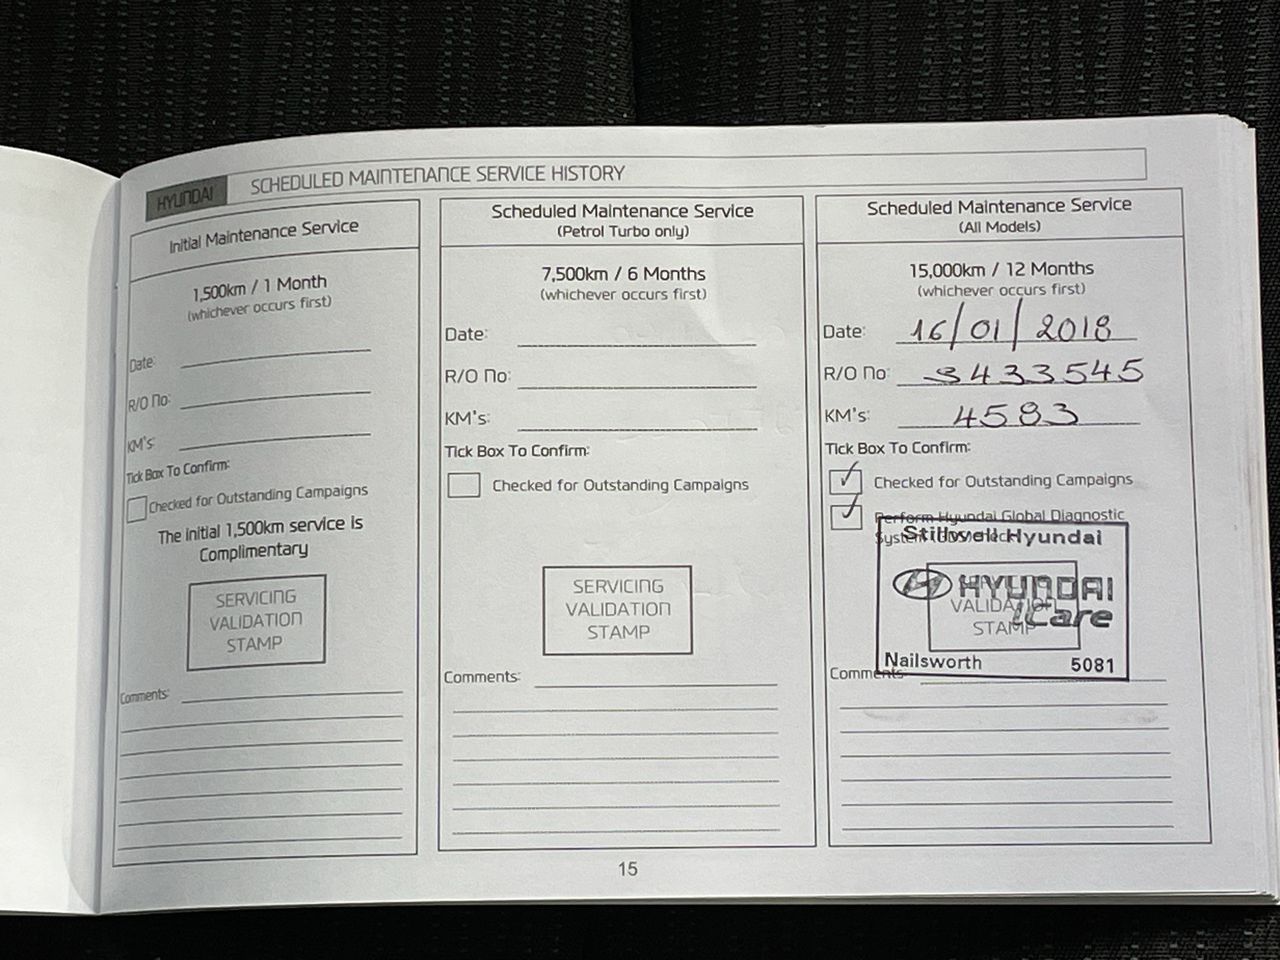 HYUNDAI SCHEDULED MAINTENANCE SERVICE HISTORY
Initial Maintenance Service
1,500km / 1 Month
(whichever occurs first)
Date:
R/O No:
KM's:
Tick Box To Confirm:
Checked for Outstanding Campaigns
The initial 1,500km service is
Complimentary
SERVICING
VALIDATION
STAMP
Comments:
Scheduled Maintenance Service
(Petrol Turbo only)
7,500km / 6 Months
(whichever occurs first)
Date:
R/O No:
KM's:
Tick Box To Confirm:
Checked for Outstanding Campaigns
SERVICING
VALIDATION
STAMP
Comments:
Scheduled Maintenance Service
(All Models)
15,000km / 12 Months
(whichever occurs first)
Date: 16/01/2018
R/O No: 3433545
KM's: 4583
Tick Box To Confirm:
Checked for Outstanding Campaigns
Perform Hyundai Global Diagnostic
System
Stillwell Hyundai
HYUNDAI
iCare
VALIDATION
STAMP
Nailsworth 5081
Comments:
15